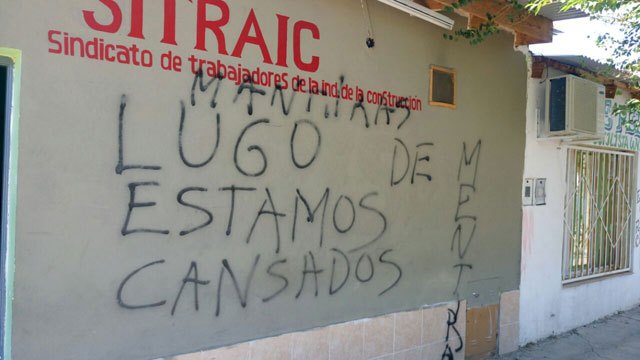 SITRAIC
Sindicato de trabajadores de la ind. de la construcción
MANTIRAS
LUGO DE
ESTAMOS
CANSADOS
MENTIRA